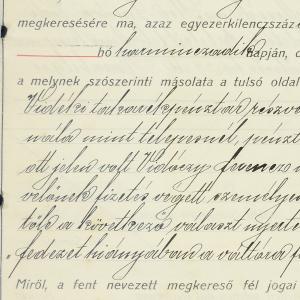 megkeresésére ma, azaz egyezerkilencszáz
hó harminczadik napján, d
a melynek szószerinti másolata a tulsó oldal
Vidéki takarékpénztár részvé
nála mint telepesnél, pénzt
ott jelen volt Vidóczy Ferencz
velőnek fizetés végett személyen
tőle a következő választ nyerte
„fedezet hiányában a váltóra f
Miről, a fent nevezett megkereső fél jogai